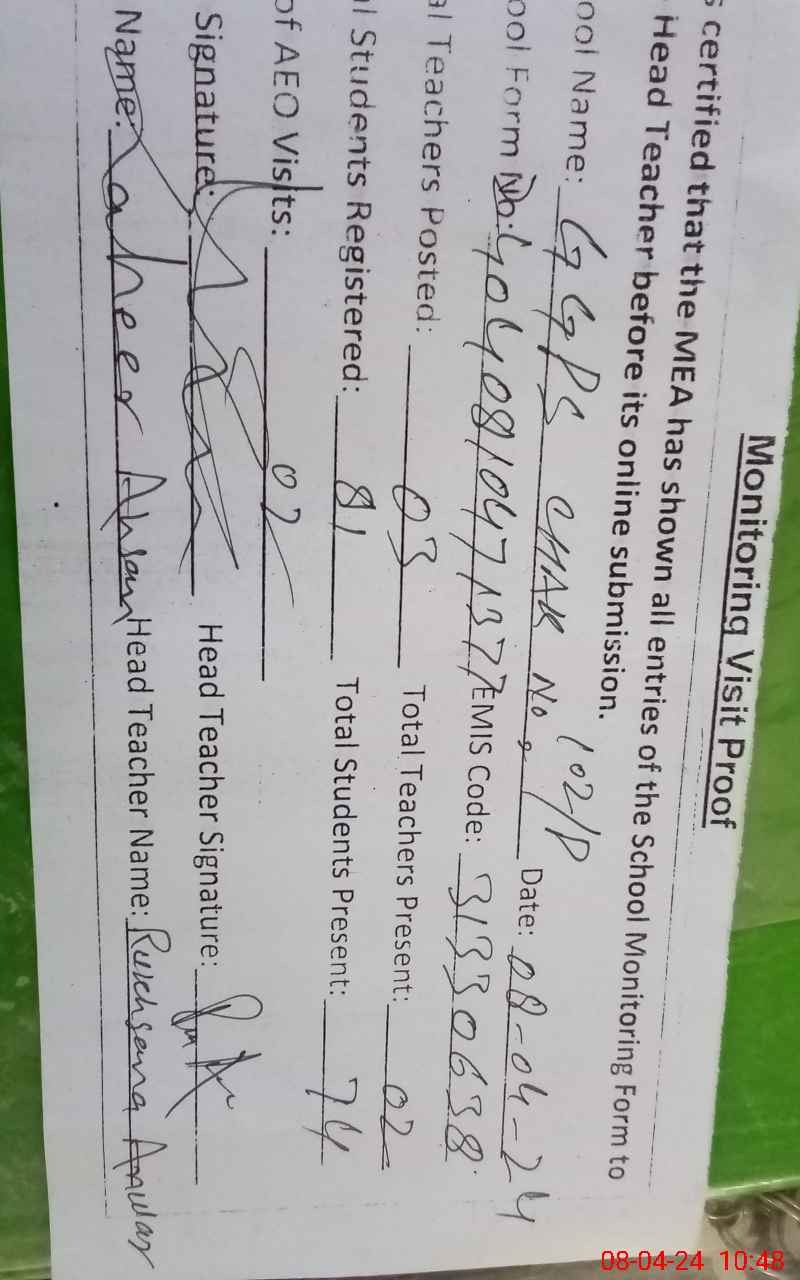 Monitoring Visit Proof
s certified that the MEA has shown all entries of the School Monitoring Form to
Head Teacher before its online submission.
ool Name: GGPS CHAK No, 102/P Date: 08-04-24
ool Form No: EMIS Code: 31330638
al Teachers Posted: 03 Total Teachers Present: 02
l Students Registered: 81 Total Students Present: 74
of AEO Visits: 02
Signature: Head Teacher Signature:
Name: Zaheer Ahsan Head Teacher Name: Rukhsana
08-04-24 10:48